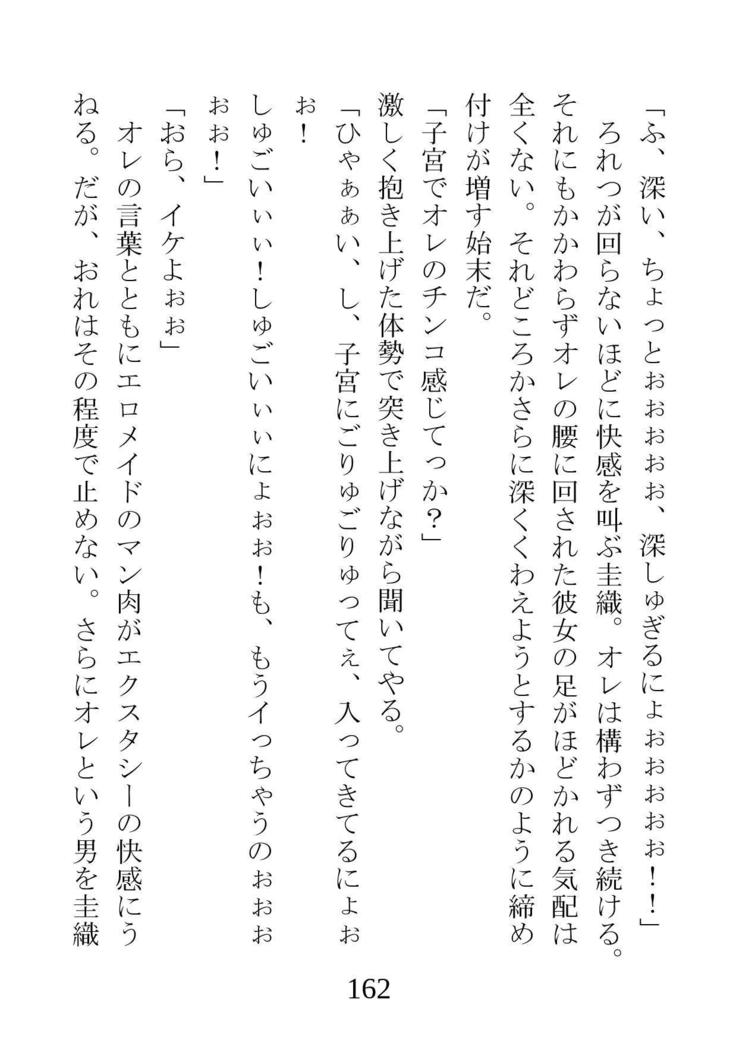 「ふ、深い、ちょっとぉぉぉぉぉ、深しゅぎるにょぉぉぉぉぉ！！」
ろれつが回らないほどに快感を叫ぶ圭織。オレは構わずつき続ける。
それにもかかわらずオレの腰に回された彼女の足がほどかれる気配は
全くない。それどころかさらに深くくわえようとするかのように締め
付けが増す始末だ。
「子宮でオレのチンコ感じてっか？」
激しく抱き上げた体勢で突き上げながら聞いてやる。
「ひゃぁぁい、し、子宮にごりゅごりゅってぇ、入ってきてるにょぉ
ぉ！
しゅごいぃぃ！しゅごいぃぃにょぉぉ！も、もうイっちゃうのぉぉぉ
ぉぉ！」
「おら、イケよぉぉ」
オレの言葉とともにエロメイドのマン肉がエクスタシーの快感にう
ねる。だが、おれはその程度で止めない。さらにオレという男を圭織
162